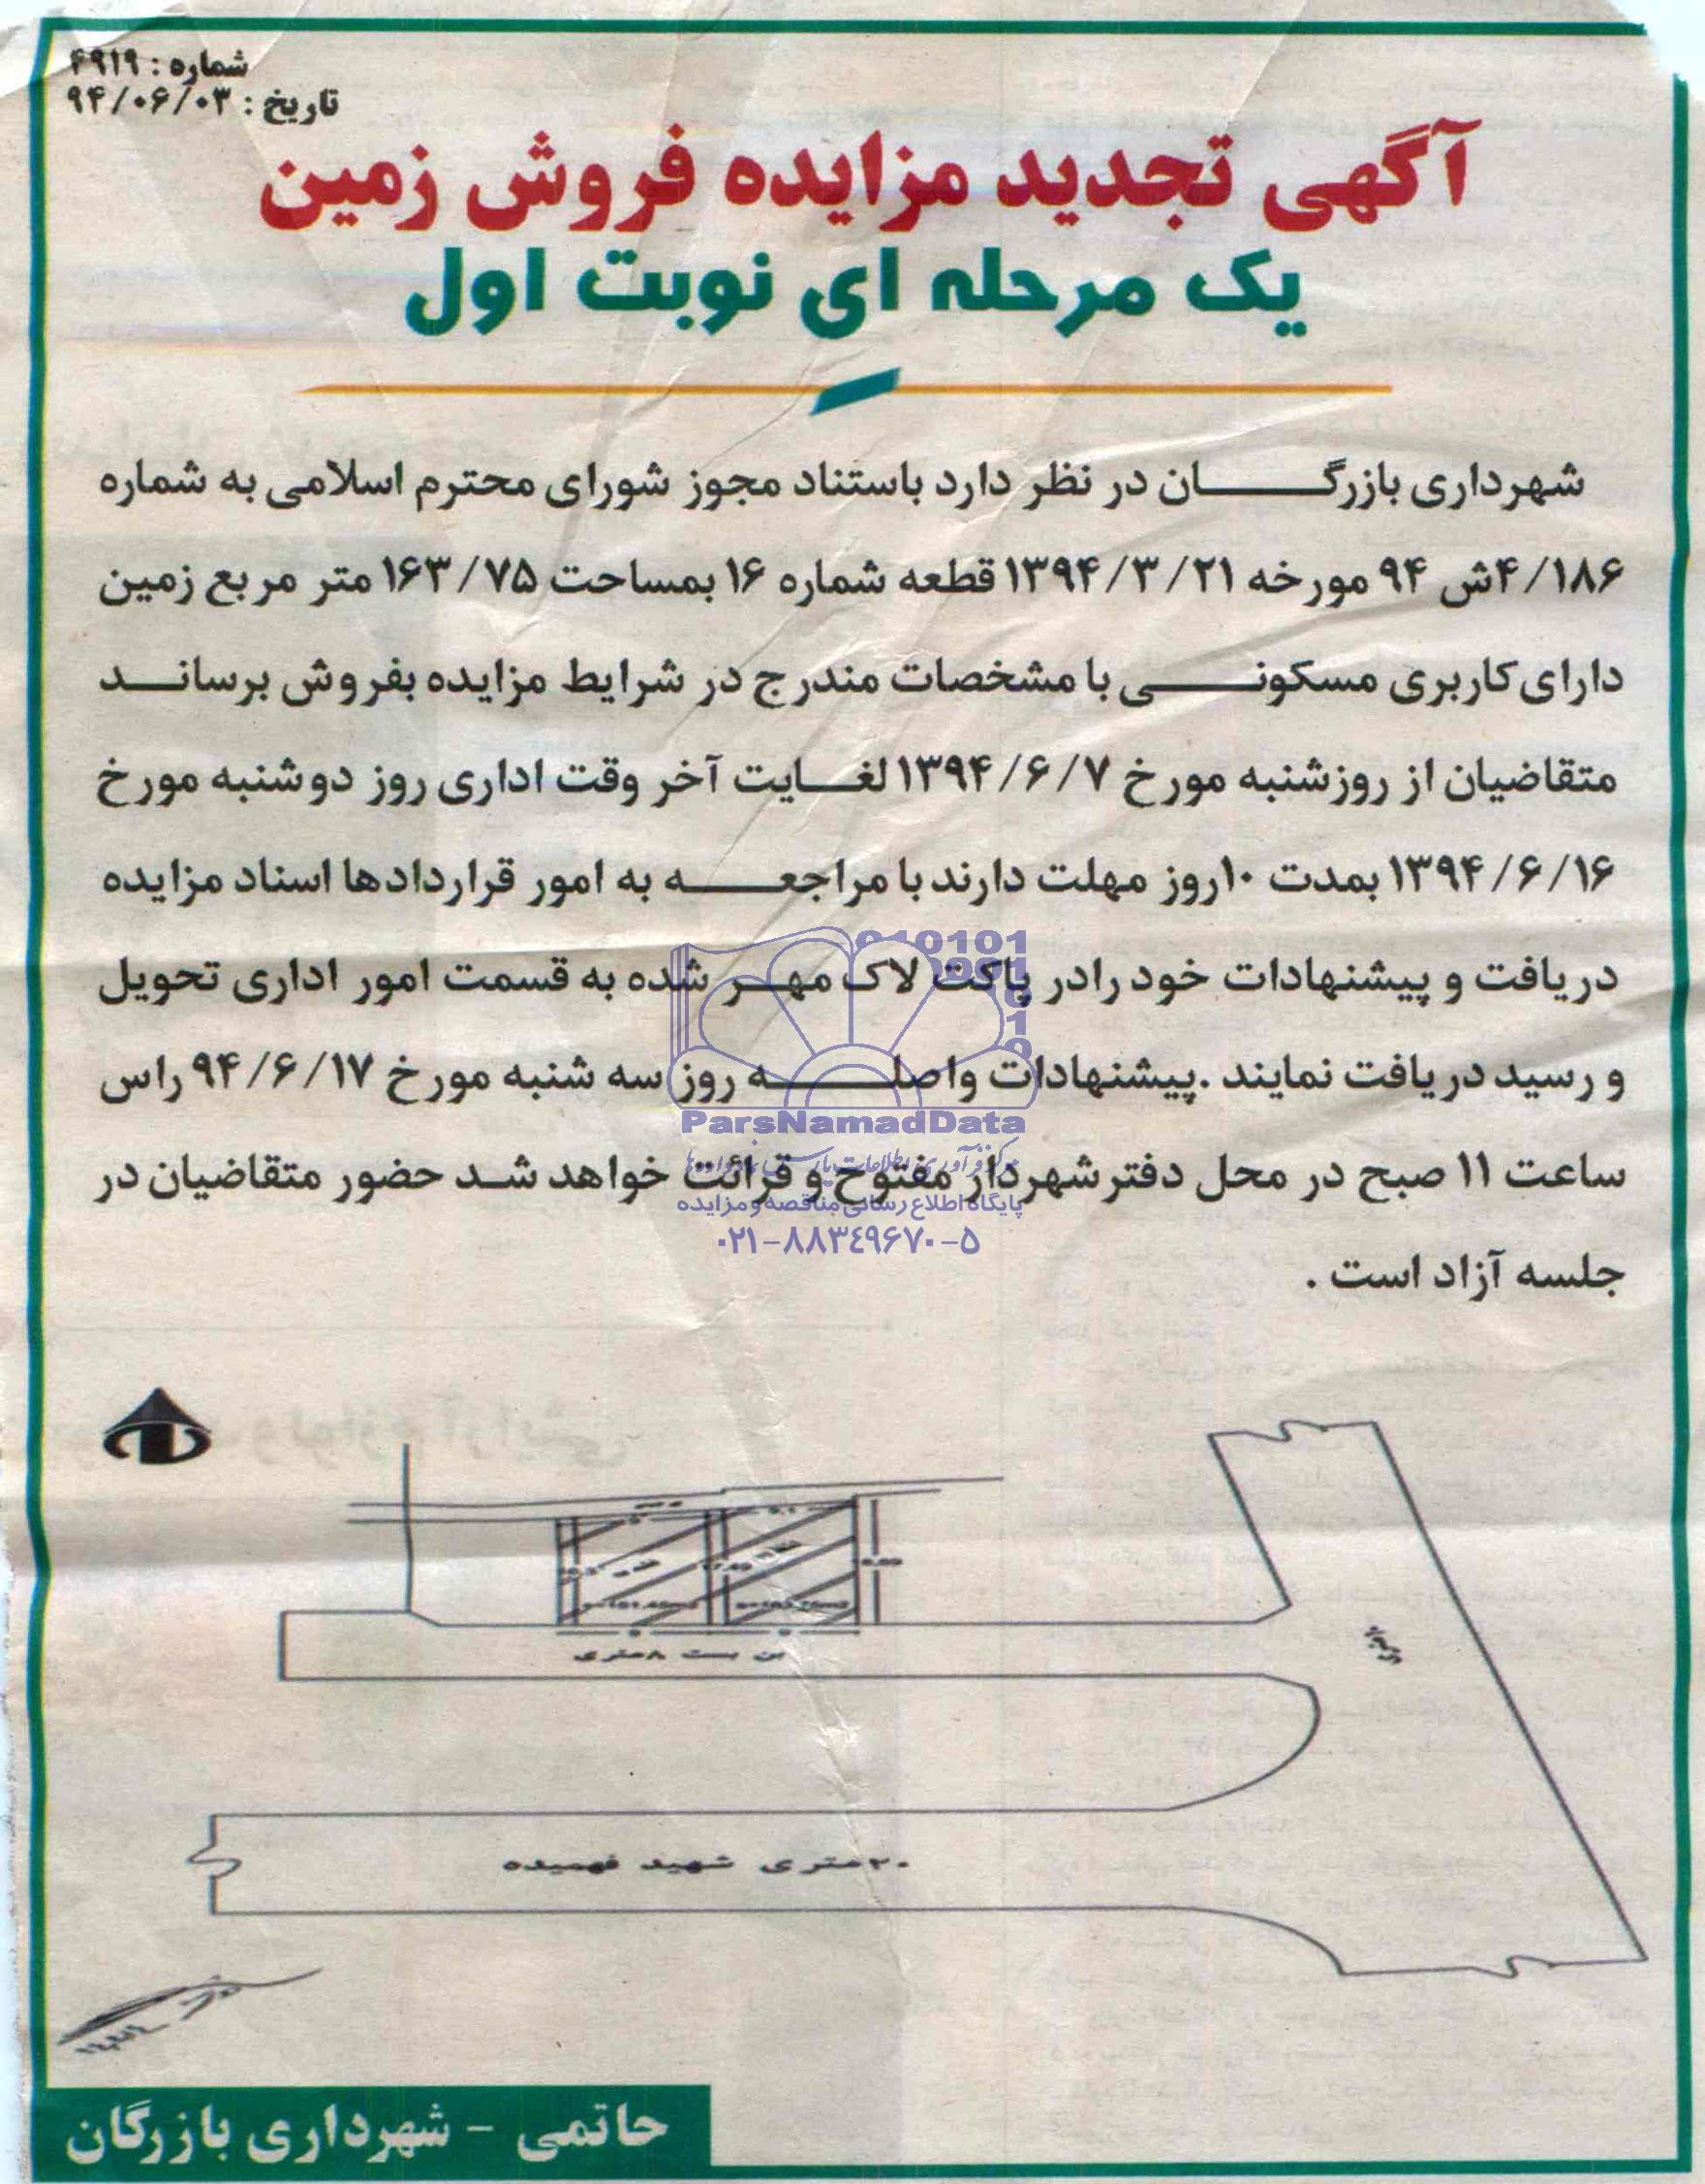 شماره : ۴۹۱۹
تاریخ : ۹۴/۰۶/۰۳
آگهی تجدید مزایده فروش زمین
یک مرحله ای نوبت اول
شهرداری بازرگان در نظر دارد باستناد مجوز شورای محترم اسلامی به شماره
۴/۱۸۶ش ۹۴ مورخه ۱۳۹۴/۳/۲۱ قطعه شماره ۱۶ بمساحت ۱۶۳/۷۵ متر مربع زمین
دارای کاربری مسکونی با مشخصات مندرج در شرایط مزایده بفروش برساند
متقاضیان از روزشنبه مورخ ۱۳۹۴/۶/۷ لغایت آخر وقت اداری روز دوشنبه مورخ
۱۳۹۴/۶/۱۶ بمدت ۱۰روز مهلت دارند با مراجعه به امور قراردادها اسناد مزایده
دریافت و پیشنهادات خود رادر پاکت لاک مهر شده به قسمت امور اداری تحویل
و رسید دریافت نمایند .پیشنهادات واصله روز سه شنبه مورخ ۹۴/۶/۱۷ راس
ساعت ۱۱ صبح در محل دفتر شهردار مفتوح و قرائت خواهد شد حضور متقاضیان در
جلسه آزاد است .
ParsNamadData
پایگاه اطلاع رسانی مناقصه و مزایده
۰۲۱-۸۸۳۴۹۶۷۰-۵
بن بست ۸متری
۲۰متری شهید فهمیده
حاتمی - شهرداری بازرگان